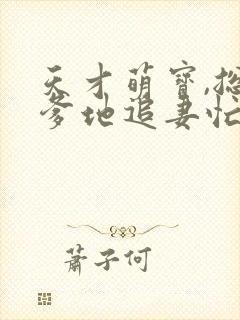 天才萌寶,總
爹地追妻忙
蕭子何